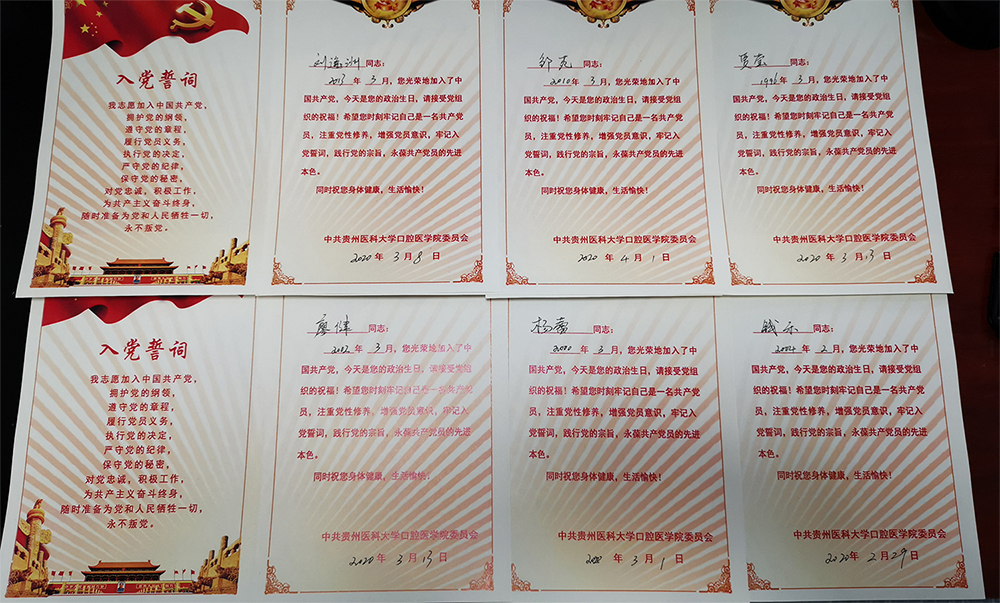 入党誓词
我志愿加入中国共产党,
拥护党的纲领,
遵守党的章程,
履行党员义务,
执行党的决定,
严守党的纪律,
保守党的秘密,
对党忠诚,积极工作,
为共产主义奋斗终身,
随时准备为党和人民牺牲一切,
永不叛党。
同志:
2013 年 3 月,您光荣地加入了中
国共产党,今天是您的政治生日,请接受党组
织的祝福!希望您时刻牢记自己是一名共产党
员,注重党性修养,增强党员意识,牢记入
党誓词,践行党的宗旨,永葆共产党员的先进
本色。
同时祝您身体健康,生活愉快!
中共贵州医科大学口腔医学院委员会
2020 年 3 月 8 日
邹亮 同志:
2010 年 3 月,您光荣地加入了中
国共产党,今天是您的政治生日,请接受党组
织的祝福!希望您时刻牢记自己是一名共产党
员,注重党性修养,增强党员意识,牢记入
党誓词,践行党的宗旨,永葆共产党员的先进
本色。
同时祝您身体健康,生活愉快!
中共贵州医科大学口腔医学院委员会
2020 年 4 月 1 日
贾莹 同志:
1996 年 3 月,您光荣地加入了中
国共产党,今天是您的政治生日,请接受党组
织的祝福!希望您时刻牢记自己是一名共产党
员,注重党性修养,增强党员意识,牢记入
党誓词,践行党的宗旨,永葆共产党员的先进
本色。
同时祝您身体健康,生活愉快!
中共贵州医科大学口腔医学院委员会
2020 年 3 月 13 日
入党誓词
我志愿加入中国共产党,
拥护党的纲领,
遵守党的章程,
履行党员义务,
执行党的决定,
严守党的纪律,
保守党的秘密,
对党忠诚,积极工作,
为共产主义奋斗终身,
随时准备为党和人民牺牲一切,
永不叛党。
廖健 同志:
2002 年 3 月,您光荣地加入了中
国共产党,今天是您的政治生日,请接受党组
织的祝福!希望您时刻牢记自己是一名共产党
员,注重党性修养,增强党员意识,牢记入
党誓词,践行党的宗旨,永葆共产党员的先进
本色。
同时祝您身体健康,生活愉快!
中共贵州医科大学口腔医学院委员会
2020 年 3 月 13 日
同志:
2000 年 3 月,您光荣地加入了中
国共产党,今天是您的政治生日,请接受党组
织的祝福!希望您时刻牢记自己是一名共产党
员,注重党性修养,增强党员意识,牢记入
党誓词,践行党的宗旨,永葆共产党员的先进
本色。
同时祝您身体健康,生活愉快!
中共贵州医科大学口腔医学院委员会
年 3 月 1 日
同志:
2004 年 2 月,您光荣地加入了中
国共产党,今天是您的政治生日,请接受党组
织的祝福!希望您时刻牢记自己是一名共产党
员,注重党性修养,增强党员意识,牢记入
党誓词,践行党的宗旨,永葆共产党员的先进
本色。
同时祝您身体健康,生活愉快!
中共贵州医科大学口腔医学院委员会
2020 年 2 月 29 日